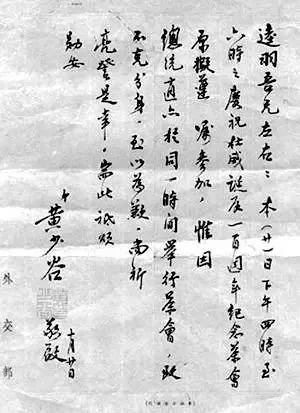 逵羽吾兄左右：本(廿)日下午四時至
六時之慶祝杜威誕辰一百週年紀念茶會
原擬遵　囑參加，惟因
總統適亦於同一時間舉行茶會，致
不克分身，至以為歉。尚祈
亮詧是幸，耑此祗頌
勛安
黃少谷
敬啟
十月廿日
外交部